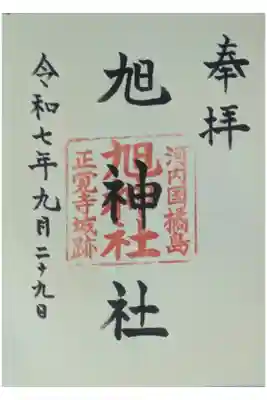 奉拝
河内国橘島
旭神社
旭神社
正覚寺城跡
令和七年九月二十九日